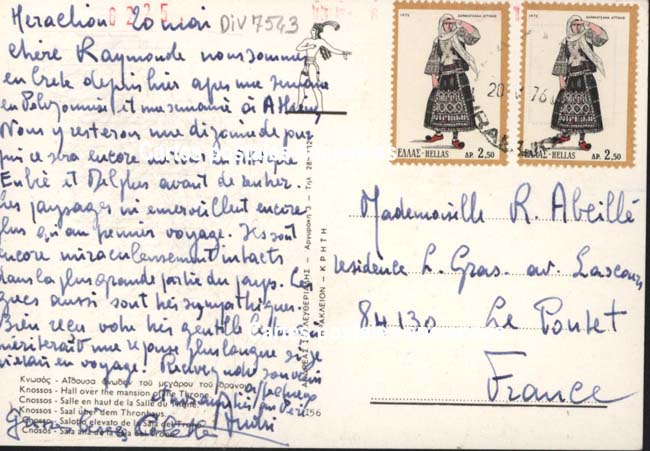 Heraclion 20 mai
DIV 7543
chère Raymonde nous sommes
en Crète depuis hier après une semaine
en Péloponnèse et une semaine à Athènes
Nous y resterons une dizaine de jours
qui ce sera encore
et Delphes avant de rentrer.
Les paysages m'émerveillent encore
plus qu'au premier voyage. Ils sont
encore miraculeusement intacts
dans la plus grande partie du pays. Les
grecs aussi sont très sympathiques.
Bien reçu votre très gentille lettre qui
mériterait une réponse plus longue si je
n'étais en voyage. Recevez notre souvenir
affectueux
Κνωσός - Αἴθουσα ἄνωθεν τοῦ μεγάρου τοῦ θρόνου
Knossos - Hall over the mansion of the Throne.
Cnossos - Salle en haut de la Salle du Trône.
Knossos - Saal über dem Thronhaus.
Cnosso - Salotto elevato de la Sala del Trono
Cnosos - Sala alta de la Sala del Trono
156
ΑΝΔΡΕΑΣ ΣΤ. ΕΛΕΥΘΕΡΙΑΔΗΣ - Αργυράκη - Τηλ. 28
ΗΡΑΚΛΕΙΟΝ - ΚΡΗΤΗ
1972
ΕΛΛΑΣ-HELLAS ΔΡ. 2,50
1972
ΕΛΛΑΣ-HELLAS ΔΡ. 2,50
76
Mademoiselle R. Abeillé
résidence L. Gras. av. Lascours
84130 Le Pontet
France